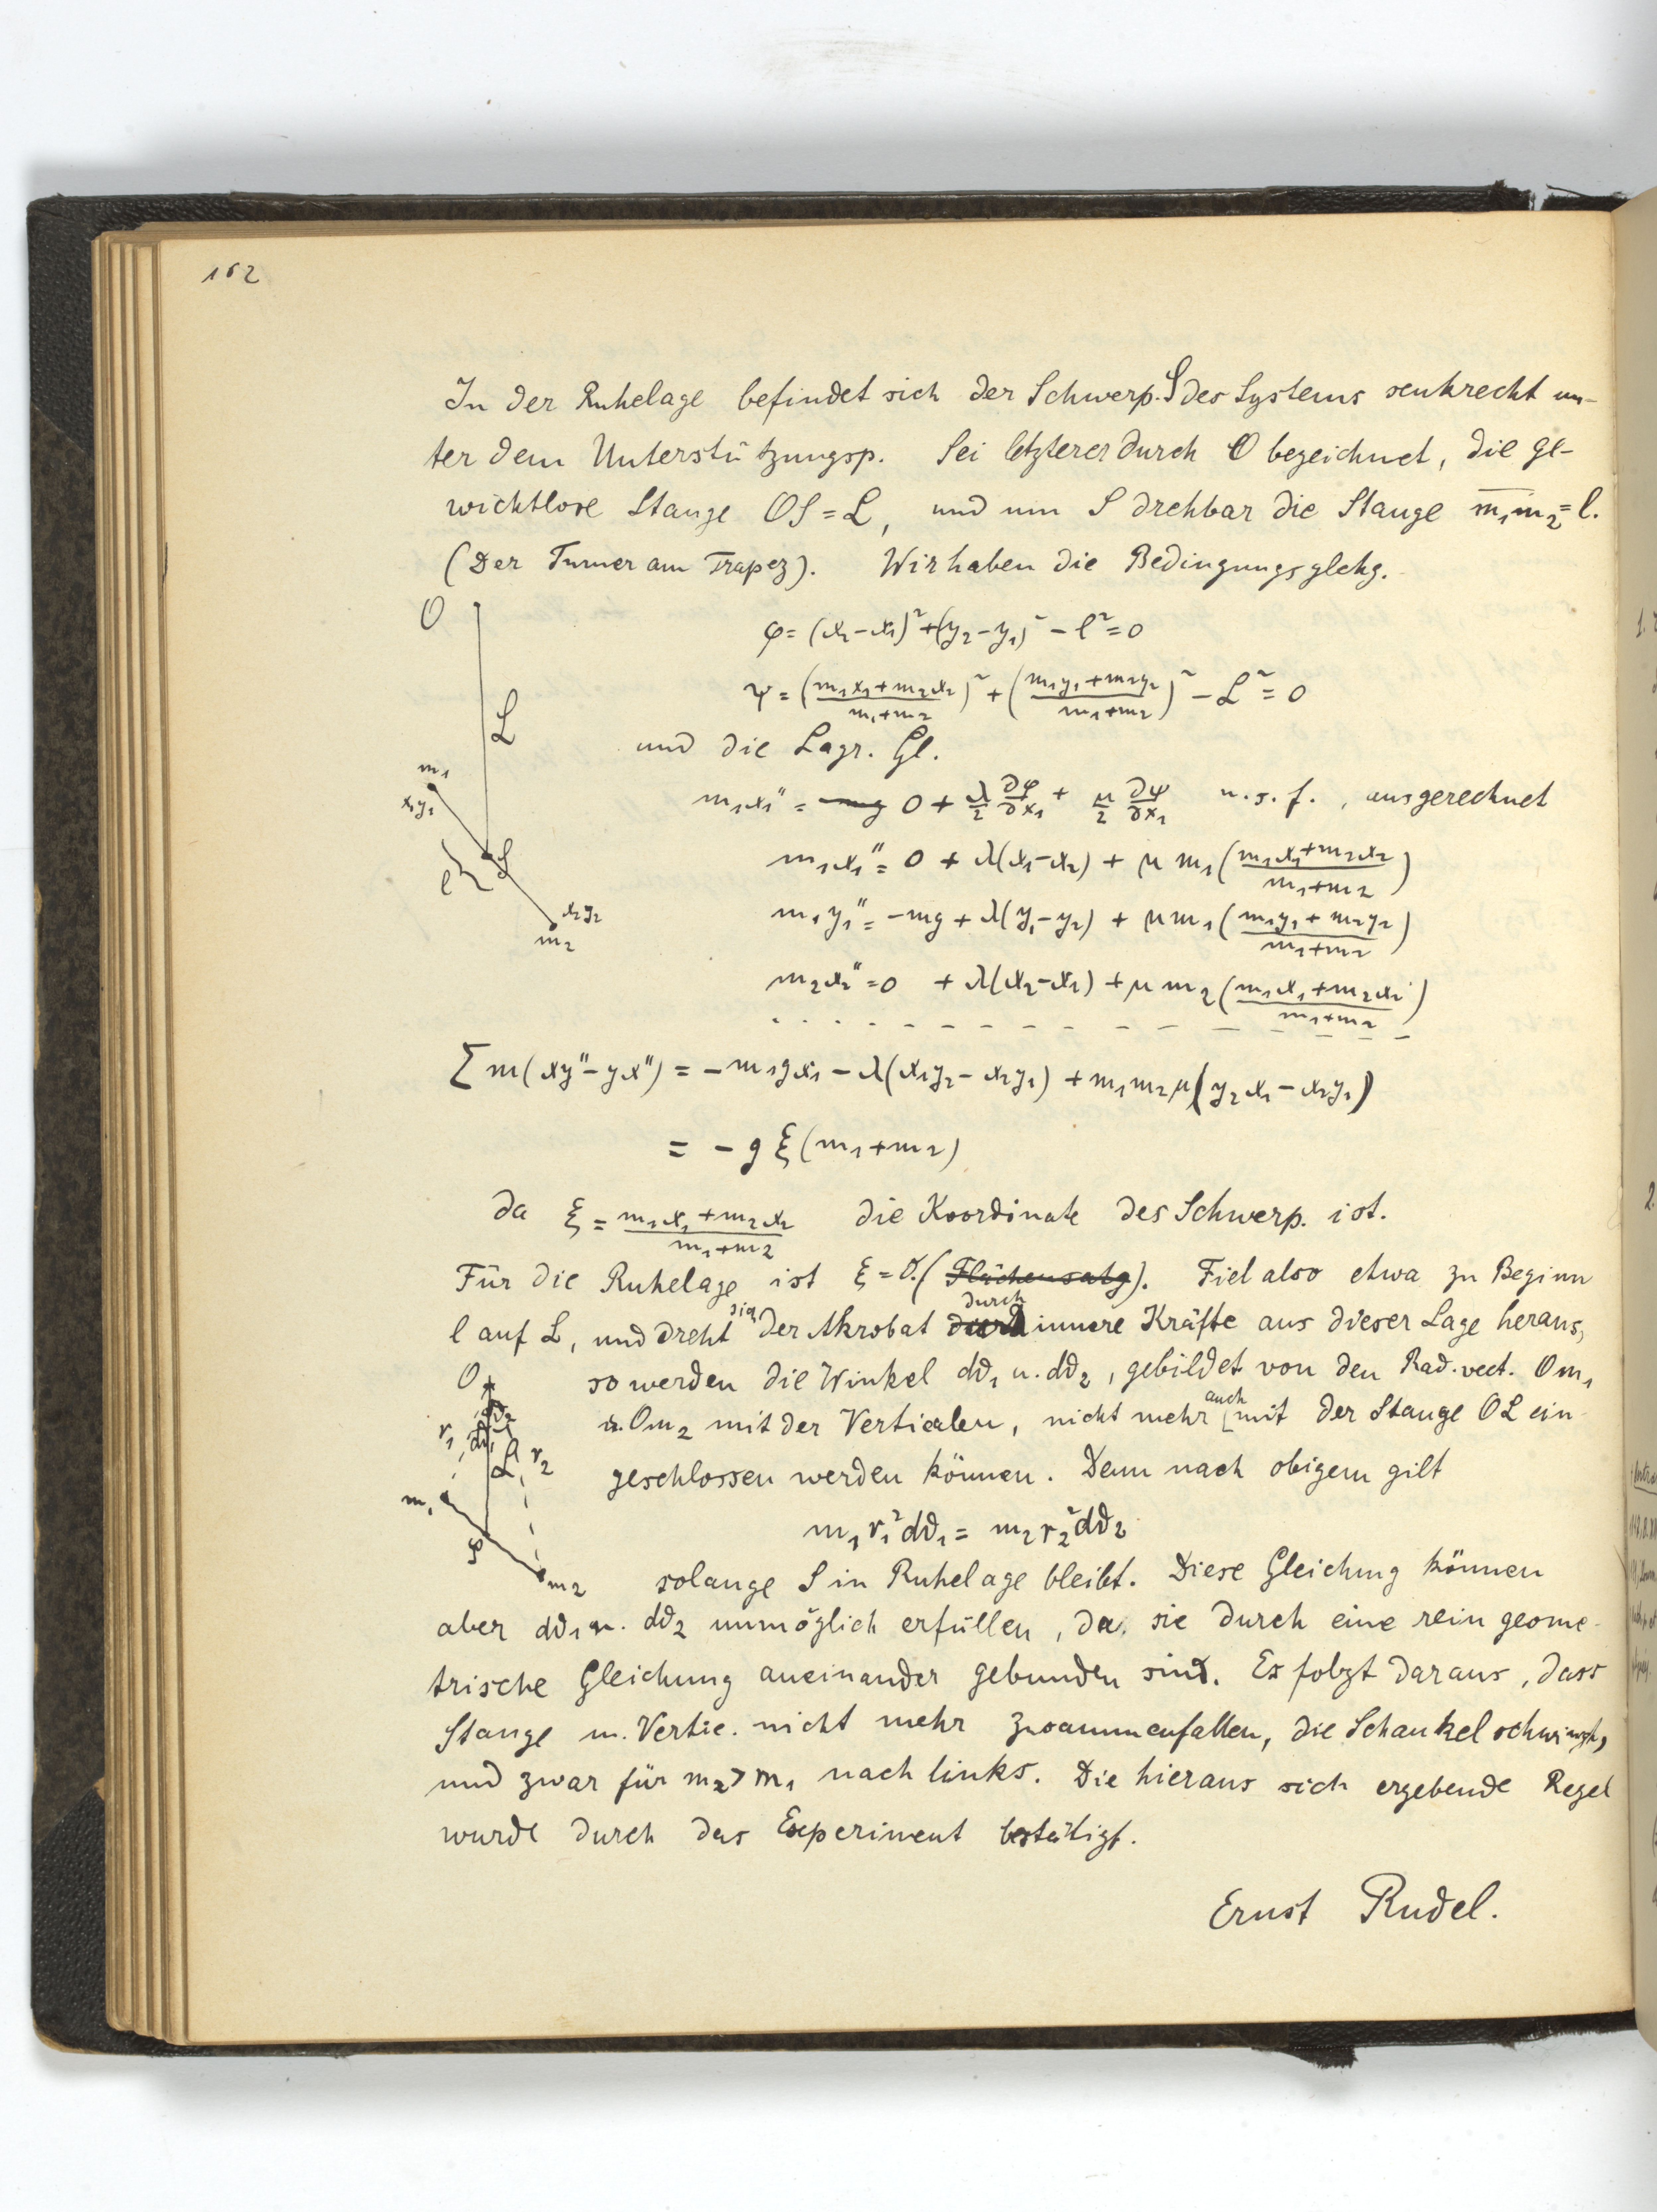 162
In der Ruhelage befindet sich der Schwerp. S des Systems senkrecht un-
ter dem Unterstützungsp. Sei letzterer durch O bezeichnet, die ge-
wichtlose Stange OS = L, und um S drehbar die Stange m₁m₂ = l.
(Der Turner am Trapez). Wir haben die Bedingungsglchg.
O
φ = (x₂-x₁)² + (y₂-y₁)² - l² = 0
ψ = ((m₁x₁+m₂x₂)/(m₁+m₂))² + ((m₁y₁+m₂y₂)/(m₁+m₂))² - L² = 0
L
und die Lagr. Gl.
m₁
x₁y₁
m₁x₁'' = 0 + λ/2 ∂φ/∂x₁ + μ/2 ∂ψ/∂x₁ u.s.f., ausgerechnet
m₁x₁'' = 0 + λ(x₁-x₂) + μ m₁((m₁x₁+m₂x₂)/(m₁+m₂))
S
l
m₁y₁'' = -mg + λ(y₁-y₂) + μ m₁((m₁y₁+m₂y₂)/(m₁+m₂))
x₂y₂
m₂
m₂x₂'' = 0 + λ(x₂-x₁) + μ m₂((m₁x₁+m₂x₂)/(m₁+m₂))
Σ m(xy''-yx'') = -m₁gx₁ - λ(x₁y₂-x₂y₁) + m₁m₂μ(y₂x₁-x₂y₁)
= -gξ(m₁+m₂)
da ξ = (m₁x₁+m₂x₂)/(m₁+m₂) die Koordinate des Schwerp. ist.
Für die Ruhelage ist ξ=0. (Flächensatz). Fiel also etwa zu Beginn
l auf L, und dreht sich der Akrobat durch innere Kräfte aus dieser Lage heraus,
so werden die Winkel dϑ₁ u. dϑ₂, gebildet von den Rad. vect. Om₁
u. Om₂ mit der Verticalen, nicht mehr auch mit der Stange OL ein-
geschlossen werden können. Denn nach obigem gilt
O
dϑ₂
r₁
dϑ₁
L
r₂
m₁
m₁r₁²dϑ₁ = m₂r₂²dϑ₂
S
m₂
solange S in Ruhelage bleibt. Diese Gleichung können
aber dϑ₁ u. dϑ₂ unmöglich erfüllen, da sie durch eine rein geome-
trische Gleichung aneinander gebunden sind. Es folgt daraus, dass
Stange u. Vertic. nicht mehr zusammenfallen, die Schaukel schwingt,
und zwar für m₂>m₁ nach links. Die hieraus sich ergebende Regel
wurde durch das Experiment bestätigt.
Ernst Rudel.